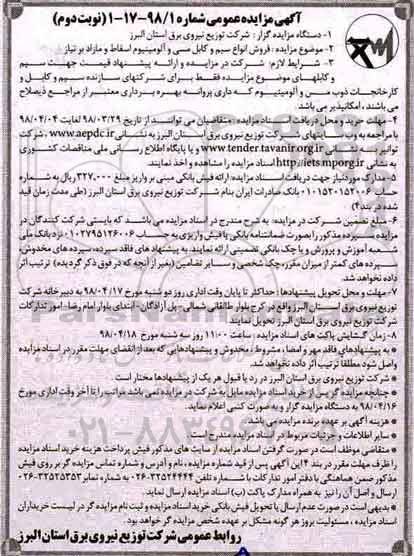 آگهی مزایده عمومی شماره ۹۸/۱-۱۷-۱ (نوبت دوم)
۱- دستگاه مزایده گزار : شرکت توزیع نیروی برق استان البرز
۲- موضوع مزایده : فروش انواع سیم و کابل مسی و آلومینیوم اسقاط و مازاد بر نیاز
۳- شرایط لازم: شرکت در مزایده و ارائه پیشنهاد قیمت جهت سیم
و کابلهای موضوع مزایده فقط برای شرکتهای سازنده سیم و کابل و
کارخانجات ذوب مس و آلومینیوم که دارای پروانه بهره برداری معتبر از مراجع ذیصلاح
می باشند، امکانپذیر می باشد
۴- مهلت خرید و محل دریافت اسناد مزایده : متقاضیان می توانند از تاریخ ۹۸/۰۳/۲۹ لغایت ۹۸/۰۴/۰۴
با مراجعه به وب سایتهای شرکت توزیع نیروی برق استان البرز به نشانی www.aepdc.ir ، شرکت
توانیر به نشانی www.tender.tavanir.org.ir و یا پایگاه اطلاع رسانی ملی مناقصات کشوری
به نشانی http://iets.mporg.ir اسناد مزایده را مشاهده و اخذ نمایند.
۵- مدارک مورد نیاز جهت دریافت اسناد مزایده: ارائه فیش بانکی مبنی بر واریز مبلغ ۳۲۷,۰۰۰ ریال به شماره
حساب ۰۱۰۱۵۲۰۱۵۲۰۰۶ بانک صادرات ایران بنام شرکت توزیع نیروی برق استان البرز (طی مدت زمان قید
شده در بند۴)
۶- مبلغ تضمین شرکت در مزایده: به شرح مندرج در اسناد مزایده می باشد که بایستی شرکت کنندگان در
مزایده سپرده مذکور را بصورت ضمانتنامه بانکی یا فیش واریزی به حساب ۰۱۰۲۷۹۵۱۲۶۰۰۶ نزد بانک ملی
شعبه آموزش و پرورش و یا چک بانکی تضمینی ارائه نمایند. به پیشنهاد های فاقد سپرده، سپرده های مخدوش،
سپرده های کمتر از میزان مقرر، چک شخصی و سایر تضامین (بغیر از آنچه که در فوق ذکر گردید) ترتیب اثر
داده نخواهد شد.
۷- مهلت و محل تحویل پیشنهادها: حداکثر تا پایان وقت اداری روز دو شنبه مورخ ۹۸/۰۴/۱۷ به دبیرخانه شرکت
توزیع نیروی برق استان البرز واقع در کرج بلوار طالقانی شمالی- پل آزادگان- ابتدای بلوار امام رضا- امور تدارکات
شرکت توزیع نیروی برق استان البرز تحویل نمایند
۸- زمان گشایش پاکت های اسناد مزایده : ساعت ۱۱:۰۰ روز سه شنبه مورخ ۹۸/۰۴/۱۸
* به پیشنهادهای فاقد مهر و امضاء، مشروط، مخدوش و پیشنهادهایی که بعد از انقضای مهلت مقرر در اسناد مزایده
واصل شود مطلقا ترتیب اثر داده نخواهد شد.
* شرکت توزیع نیروی برق استان البرز در رد یا قبول هر یک از پیشنهادها مختار است
* چنانچه مزایده گر پس از خرید اسناد مزایده مایل به شرکت در مزایده نمی باشد مراتب را تا آخر وقت اداری مورخ
۹۸/۰۴/۱۶ به دستگاه مزایده گزار و به صورت کتبی اعلام نماید.
* هزینه آگهی بر عهده برنده مزایده می باشد.
* سایر اطلاعات و جزئیات مربوط در اسناد مزایده مندرج است
* متقاضی موظف است در صورت گرفتن اسناد مزایده از سایت های مذکور فیش پرداخت هزینه خرید اسناد مزایده
را ظرف مهلت مقرر در بند ۴ این آگهی پس از قید شماره مزایده، نام و آدرس و شماره تماس مزایده گر بر روی فیش
مذکور ضمن هماهنگی با دفتر امور تدارکات با شماره تلفن ۳۲۵۲۴۴۴۴-۰۲۶ به شماره نمابر ۳۲۵۲۵۳۵۳-۰۲۶
ارسال و اصل آن را نیز به همراه مدارک پاکت (ب) اسناد مزایده ارسال نماید.
* بدیهی است در صورت عدم ارسال یا تحویل فیش بانکی خرید اسناد مزایده و ثبت نام مزایده گر در لیست خریداران
اسناد مزایده ، مسئولیت بروز هر گونه مشکل بر عهده شخص مزایده گر خواهد بود.
روابط عمومی شرکت توزیع نیروی برق استان البرز